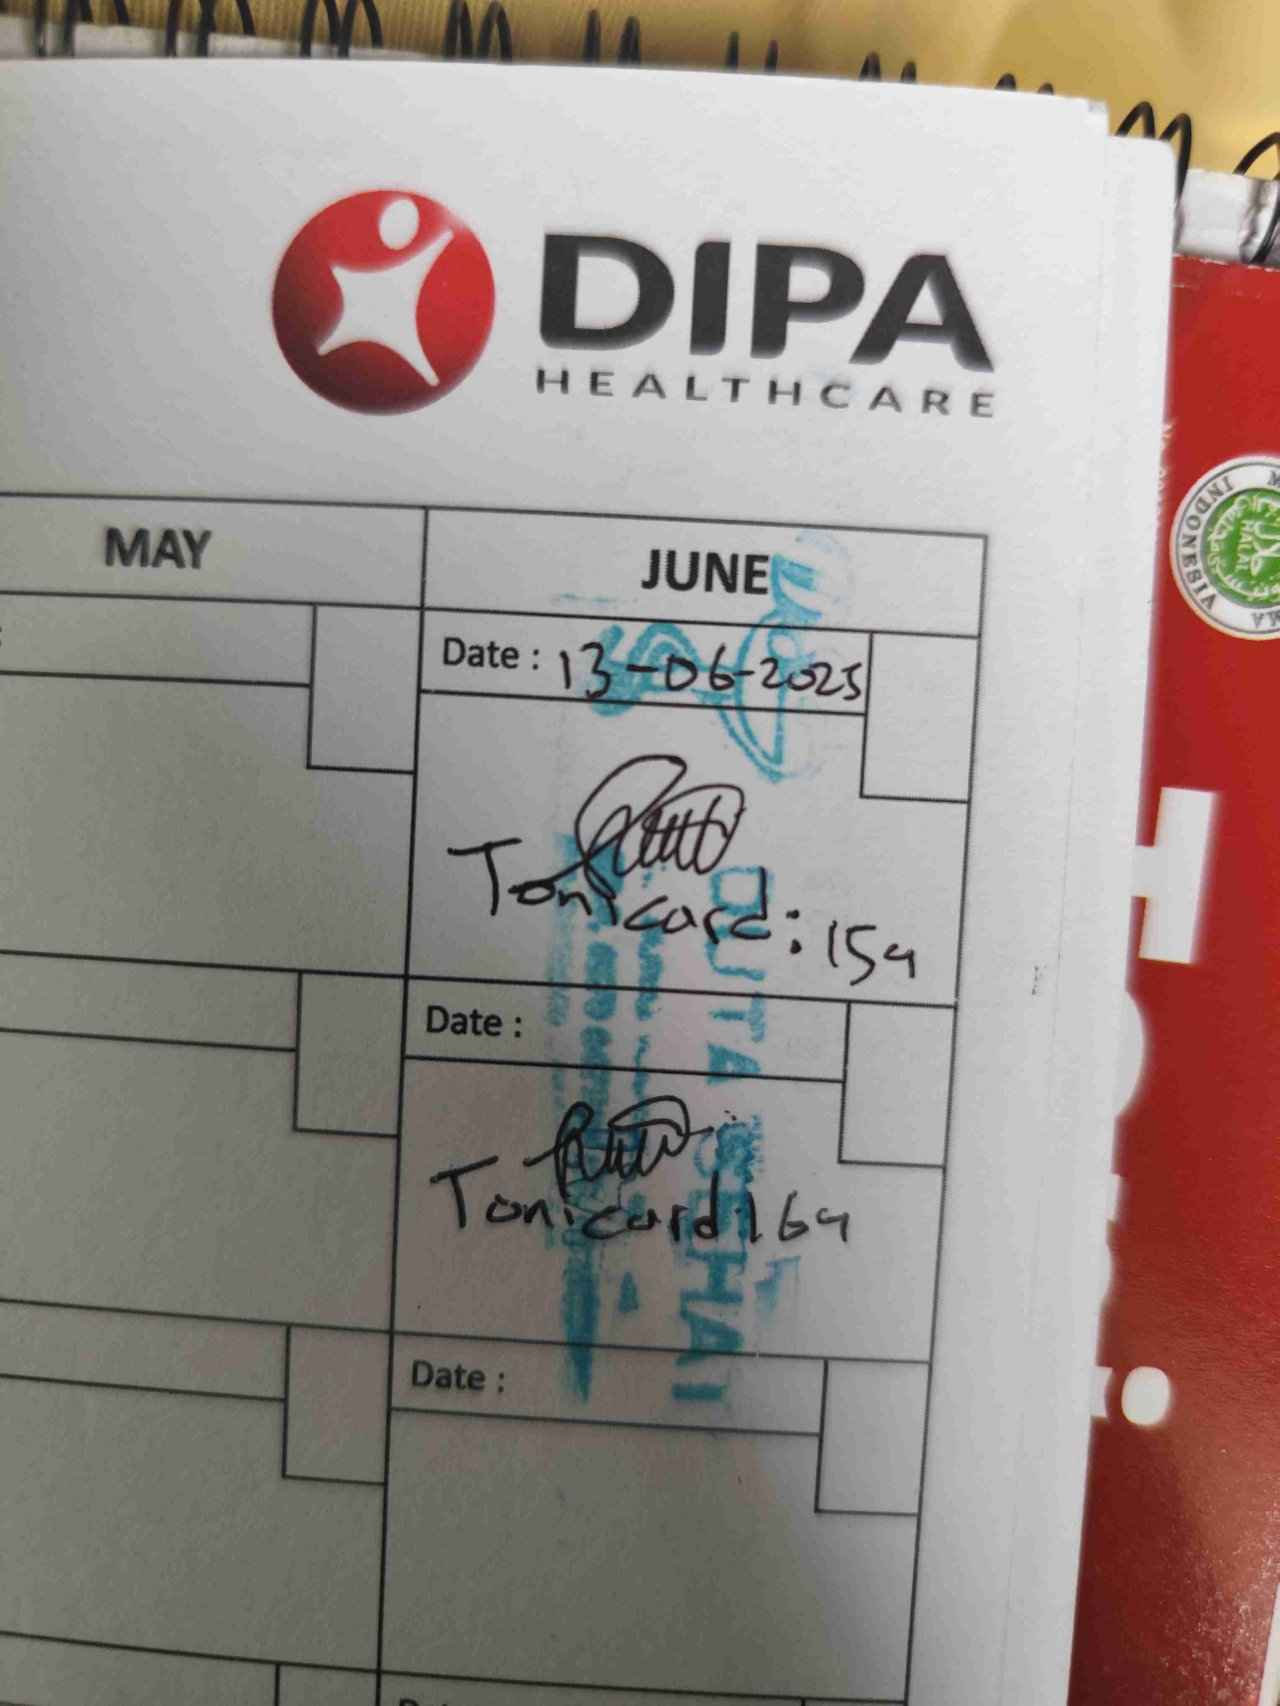 DIPA
HEALTHCARE
INDONESIA
HALAL
MAY
JUNE
Date : 13-06-2025
Tonicard : 154
Date :
Tonicard 164
Date :
DUTA SEHAT